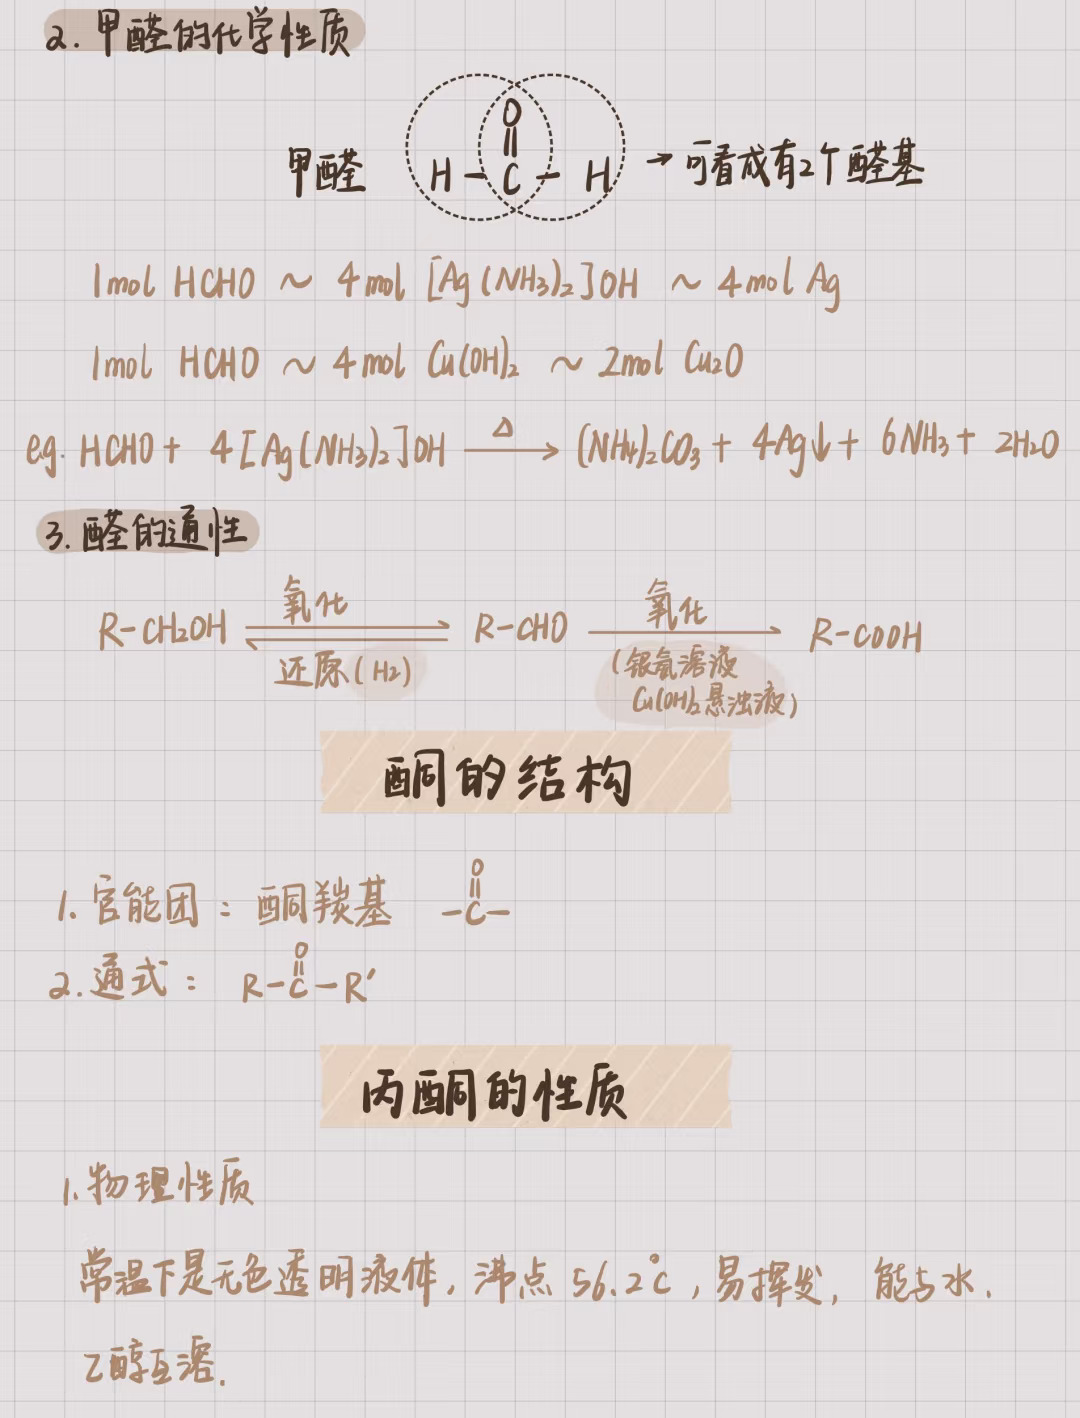 2. 甲醛的化学性质
O
||
甲醛 H-C-H → 可看成有2个醛基
1mol HCHO ~ 4mol [Ag(NH₃)₂]OH ~ 4mol Ag
1mol HCHO ~ 4mol Cu(OH)₂ ~ 2mol Cu₂O
e.g. HCHO + 4[Ag(NH₃)₂]OH —Δ→ (NH₄)₂CO₃ + 4Ag↓ + 6NH₃ + 2H₂O
3. 醛的通性
氧化 氧化
R-CH₂OH ⇌ R-CHO → R-COOH
还原(H₂) (银氨溶液
Cu(OH)₂悬浊液)
酮的结构
O
||
1. 官能团：酮羰基 -C-
O
||
2. 通式： R-C-R′
丙酮的性质
1. 物理性质
常温下是无色透明液体，沸点 56.2℃，易挥发，能与水、
乙醇互溶.